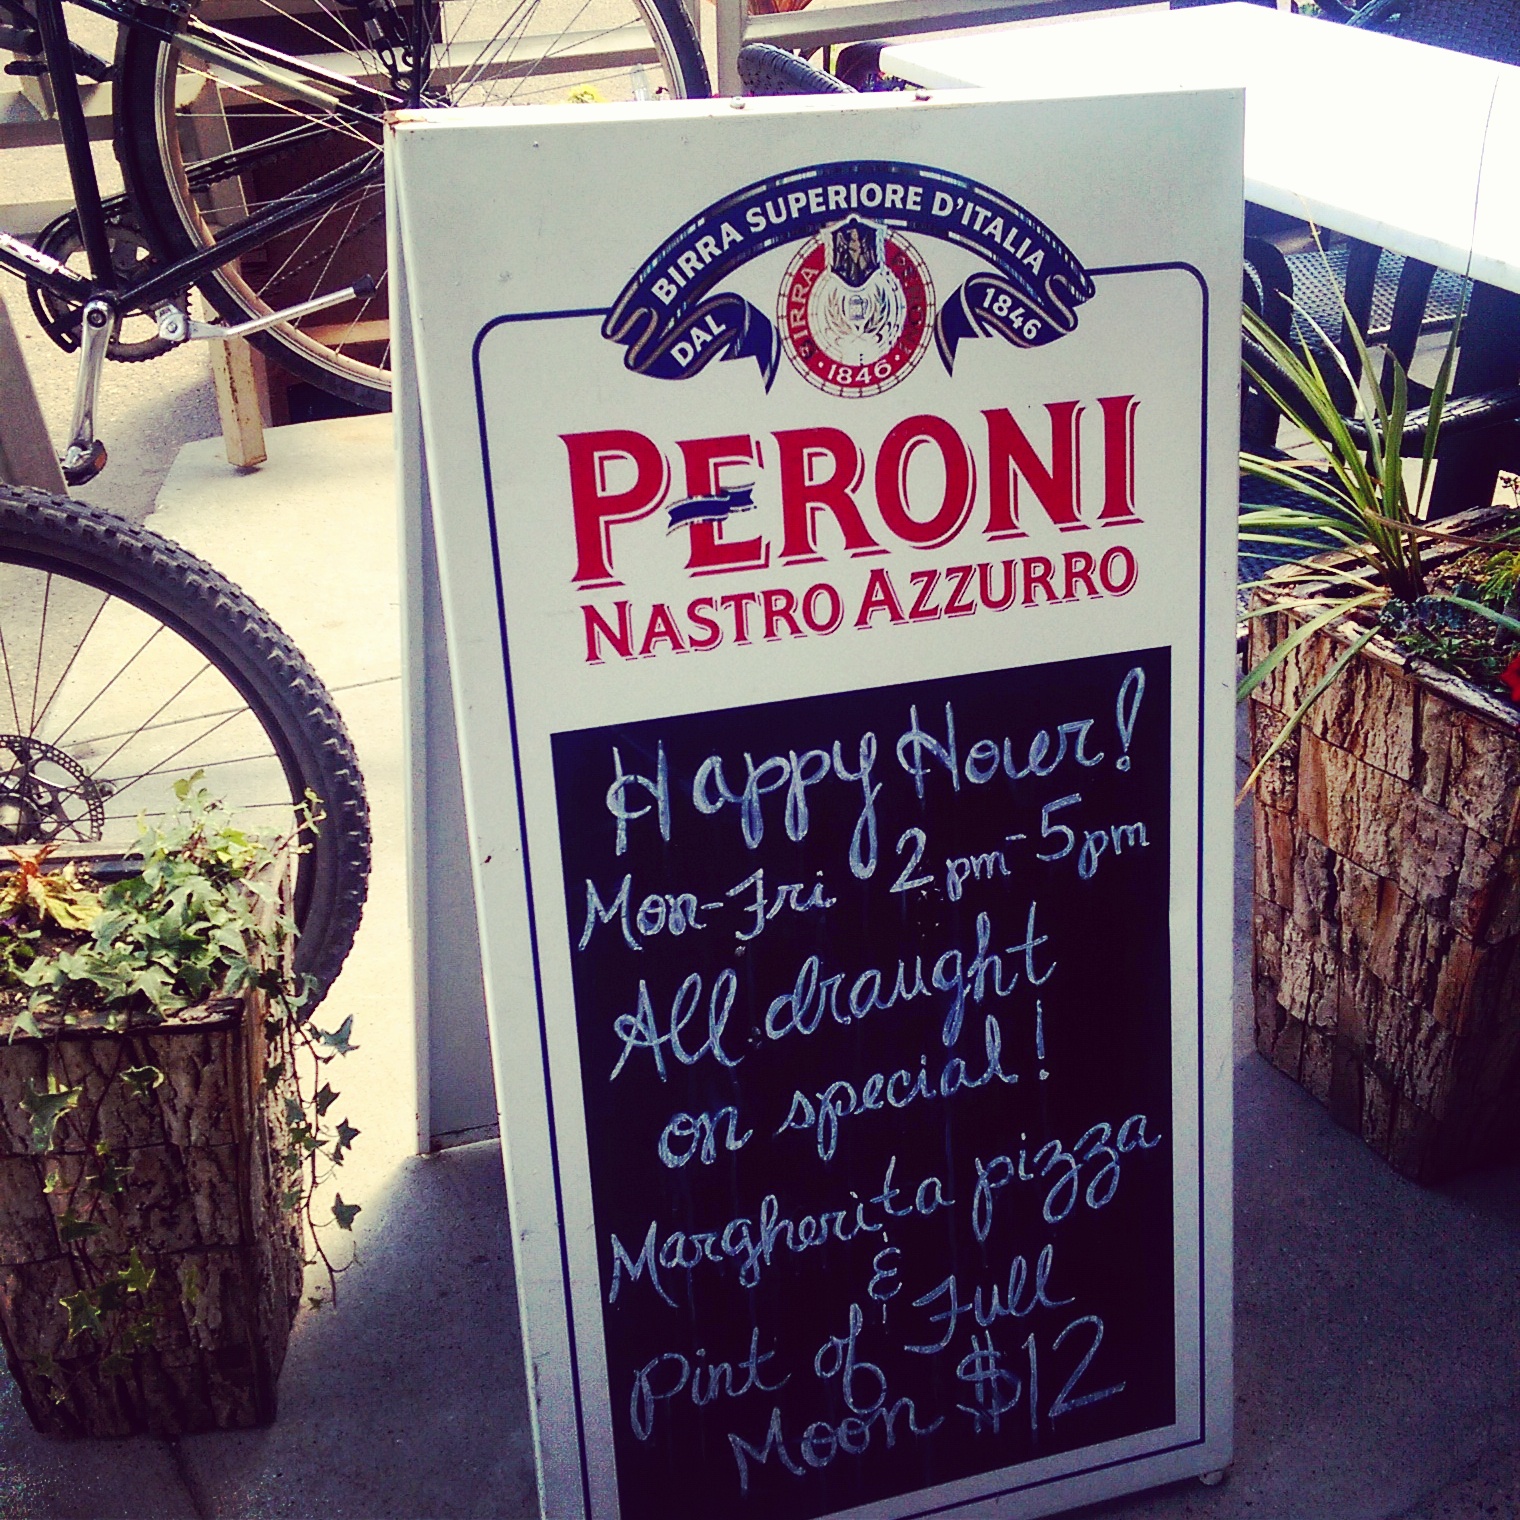 BIRRA SUPERIORE D'ITALIA
DAL 1846
BIRRA
· 1846 ·
PERONI
NASTRO AZZURRO
Happy Hour!
Mon-Fri 2pm-5pm
All draught
on special!
Margherita pizza
&
pint of Full
Moon $12